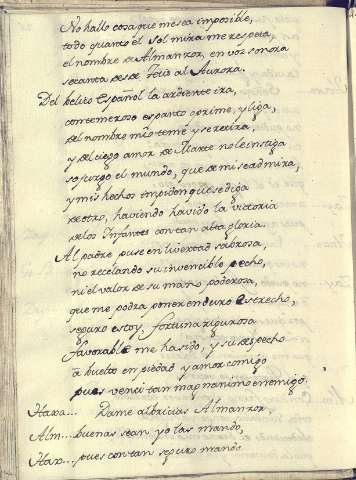 No hallo cosa que mesea imposible,
todo quanto el Sol mira me respeta
el nombre de Almanzor, en voz sonora
secanta desde Tetis al Aurora.
Del belico Español la ardiente ira,
contemeroso espanto oprime, y liga,
del nombre mio teme y seretira,
y del ciego amor de Marte nole instiga
sojuzgo el mundo, que de mi se admira,
y mis hechos impiden que sediga
de otro, haviendo havido la victoria
delos Infantes con tan alta gloria.
Al padre puse en livertad sabrosa,
no recelando su invencible pecho,
ni el valor de su mano poderosa,
que me podra poner en duro estrecho,
seguro estoy, fortuna rigurosa
favorable me hasido, y su despecho
a buelto en piedad y amor comigo
pues venci tan magnanimo enemigo.
Haxa... Dame albricias Almanzor,
Alm... buenas sean yo las mando,
Hax... pues con tan seguro mando